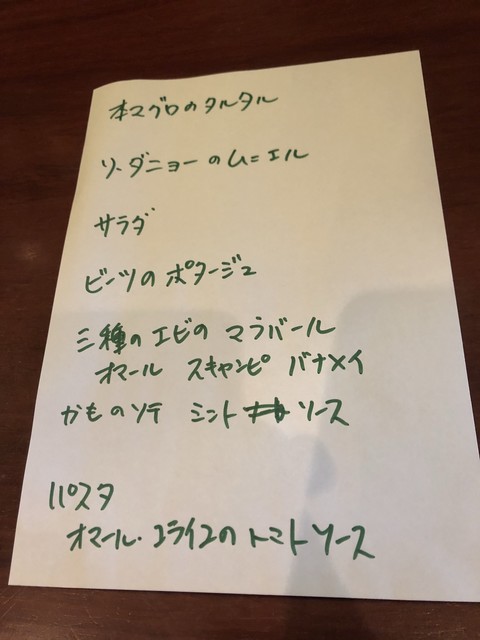 本マグロのタルタル
ソ・ダニョーのムニエル
サラダ
ビーツのポタージュ
三種のエビのマラバール
オマール スキャンピ バナメイ
かものソテ ミント ソース
パスタ
オマール・コライユのトマトソース